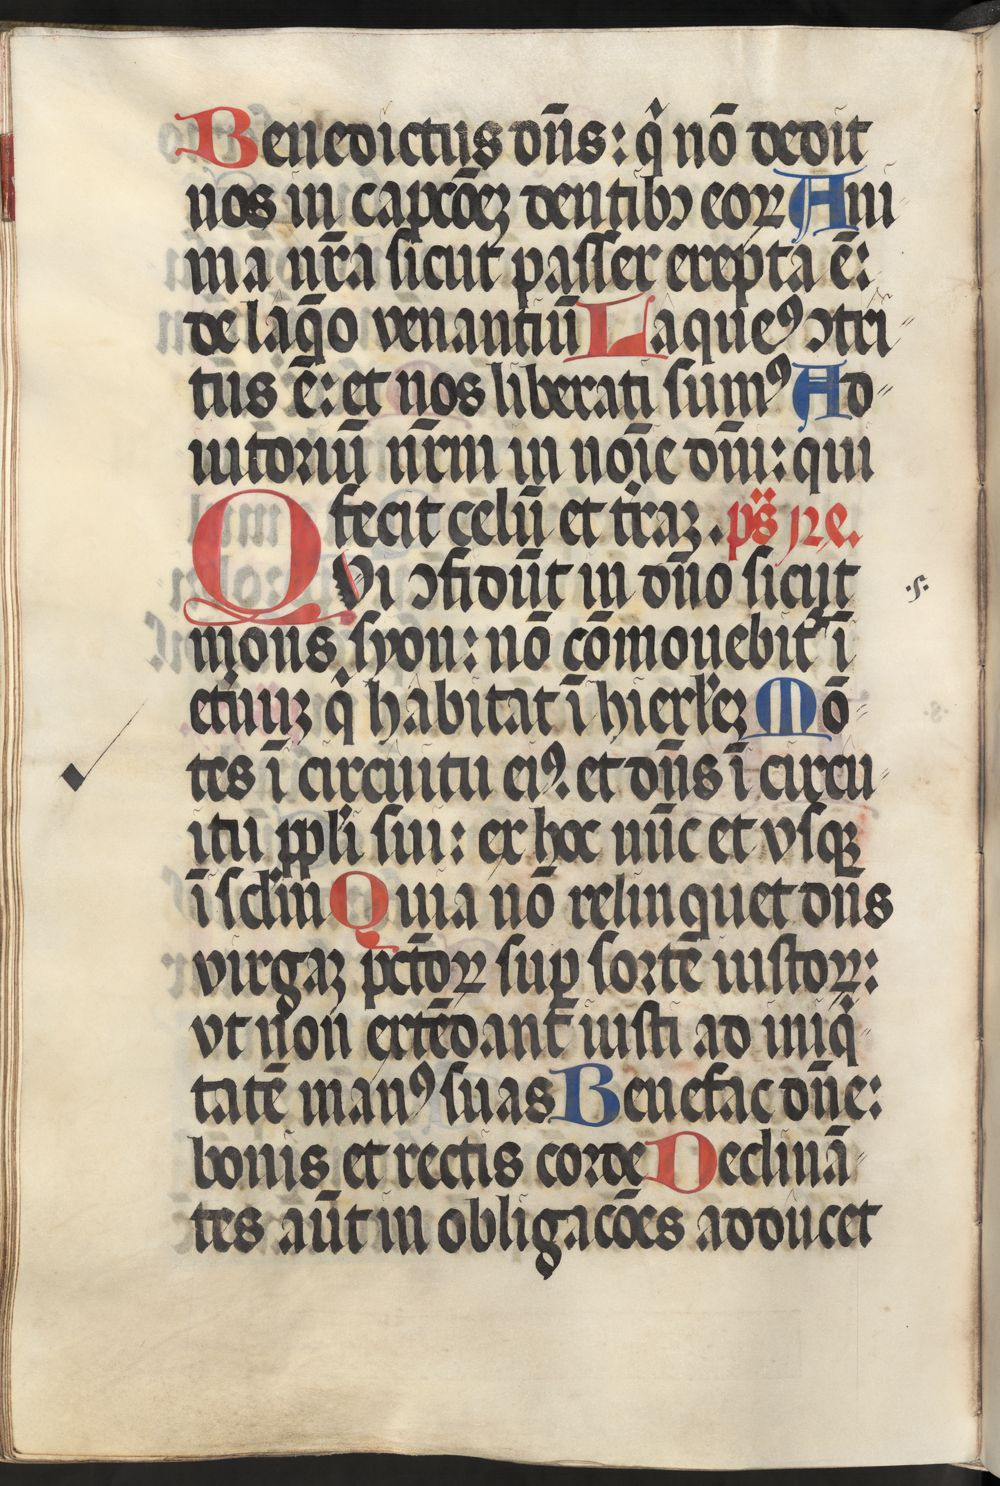 Benedictus dn̄s: q̇ nō dedit
nos in capcōeꝫ dentibꝰ eoꝝ Ani
ma nr̄a sicut passer erepta ē:
de laq̄o venantiū Laqueꝰ ꝯtri
tus ē: et nos liberati sumꝰ Ad
iutoriū nr̄m in noīe dn̄i: qui
fecit celū et tr̄aꝫ. pſ̄s
Qui ꝯfidūt in dn̄o sicut
mons syon: nō cōmouebit᷑ ī
et̄nuꝫ q̇ habitat ī hierl̄eꝫ Mō
tes ī circuitu eiꝰ. et dn̄s ī circu
itu ppl̄i sui: ex hoc nūc et vsqꝫ
ī scl̄m Quia nō relinquet dn̄s
virgaꝫ pctōꝝ suꝑ sortē iustoꝝ:
vt non extēdant iusti ad iniq̇
tatē manꝰ suas Benefac dn̄e:
bonis et rectis corde Declinā
tes aūt in obligacōes adducet
.s.